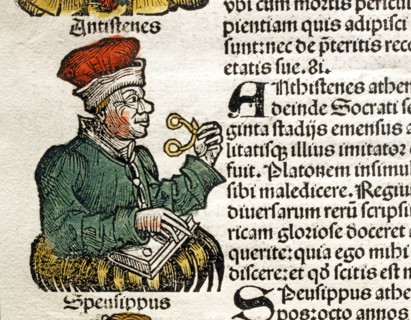 Antistenes
vbi cum mortis pericul
pientiam quis adipisci
sunt:nec de p̃teritis reco
etatis sue.81.
ANthistenes athen
deinde Socrati se
ginta stadijs emensus
litatisqꝫ illius imitator
fuit. Platonem insimul
sibi maledicere. Regiu
diuersarum rerũ scripsi
ricam gloriose doceret
querite:quia ego mihi
discere:et qđ scitis est n
SPeusippus athe
spos:octo annos
Speusippus